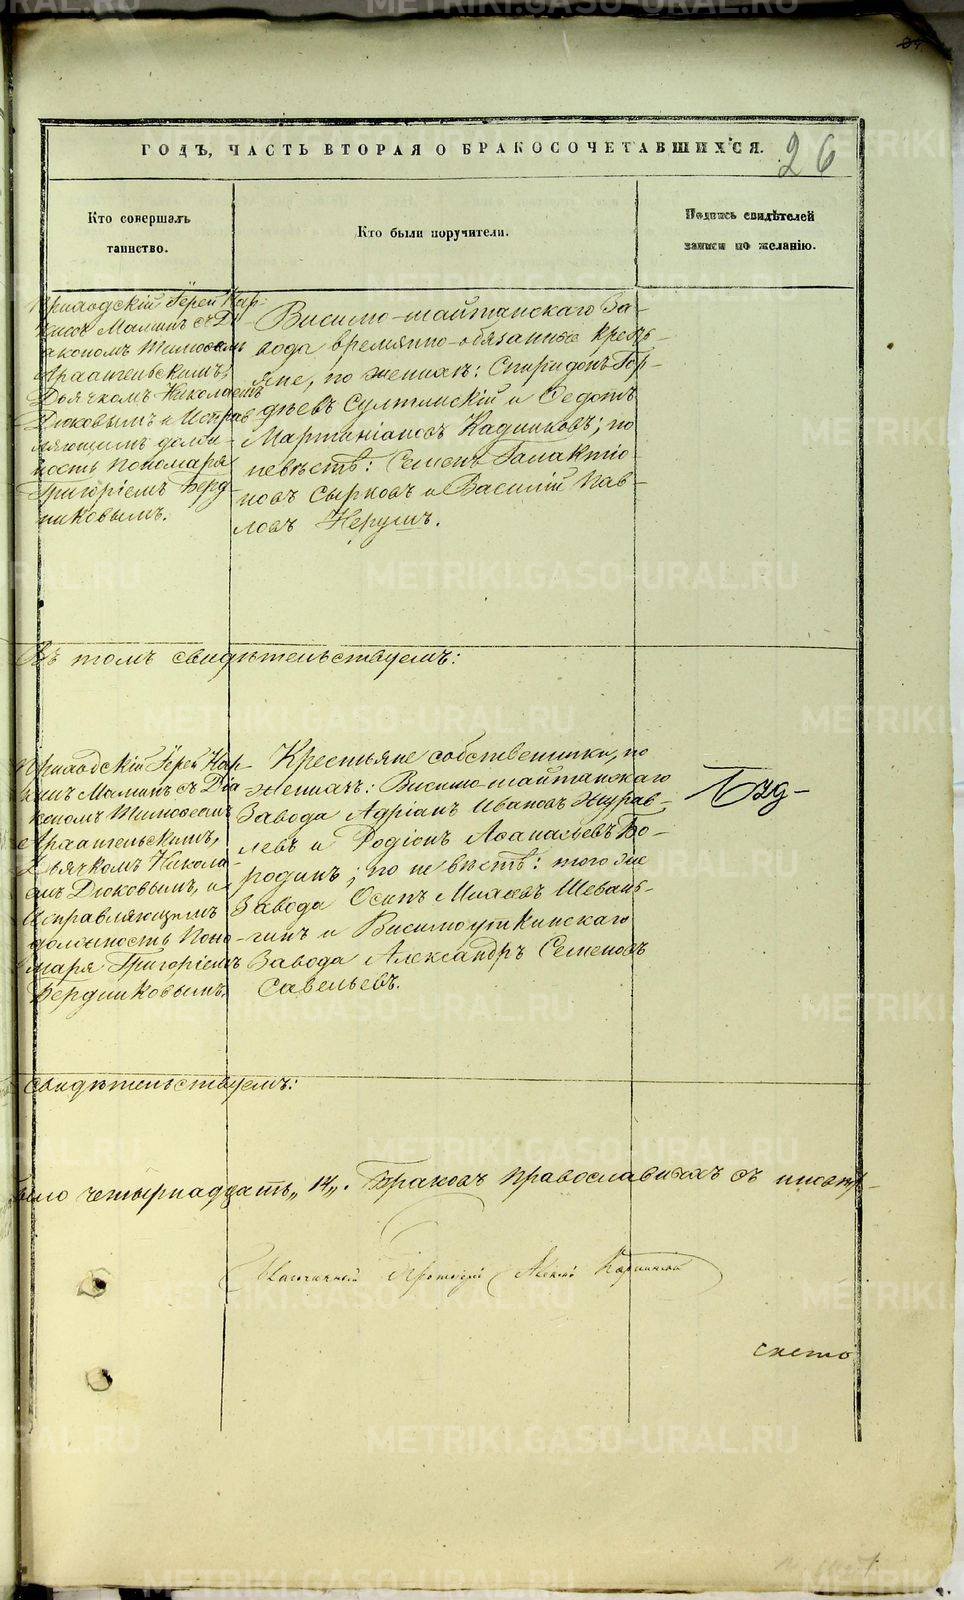 ГОДЪ, ЧАСТЬ ВТОРАЯ О БРАКОСОЧЕТАВШИХСЯ.
26
Кто совершалъ
таинство.
Кто были поручители.
Подпись свидѣтелей
записи по желанію.
Приходскій Іерей Нар-
кисъ Маминъ съ Ді-
акономъ Тимоѳеемъ
Архангельскимъ,
Дьячкомъ Николаемъ
Дюковымъ и Исправ-
ляющимъ долж-
ность Пономаря
Григоріемъ Берд-
никовымъ.
Висимо-шайтанскаго За-
вода временно-обязанные кресть-
яне, по женихѣ: Спиридонъ Гор-
дѣевъ и Ѳедотъ
Мартиніановъ Кадниковъ; по
невѣстѣ: Семенъ Галактіо-
новъ Сырковъ и Василій Пав-
ловъ
Въ томъ свидѣтельствуемъ:
Приходскій Іерей Нар-
кисъ Маминъ съ Діа
кономъ Тимоѳеемъ
Архангельскимъ,
Дьячкомъ Никола-
емъ Дюковымъ, и
Исправляющимъ
должность Поно-
маря Григоріемъ
Бердниковымъ.
Крестьяне собственники, по
женихѣ: Висимо-шайтанскаго
Завода Адріанъ Ивановъ Журав-
левъ и Родіонъ Аѳанасьевъ Бо-
родинъ; по невѣстѣ: того же
Завода Осипъ
и Висимоуткинскаго
Завода Александръ Семеновъ
Савельевъ.
свидѣтельствуемъ:
было четырнадцать „14„. Браковъ православныхъ съ иновѣр-
Благочинный Протоіерей
METRIKI.GASO-URAL.RU